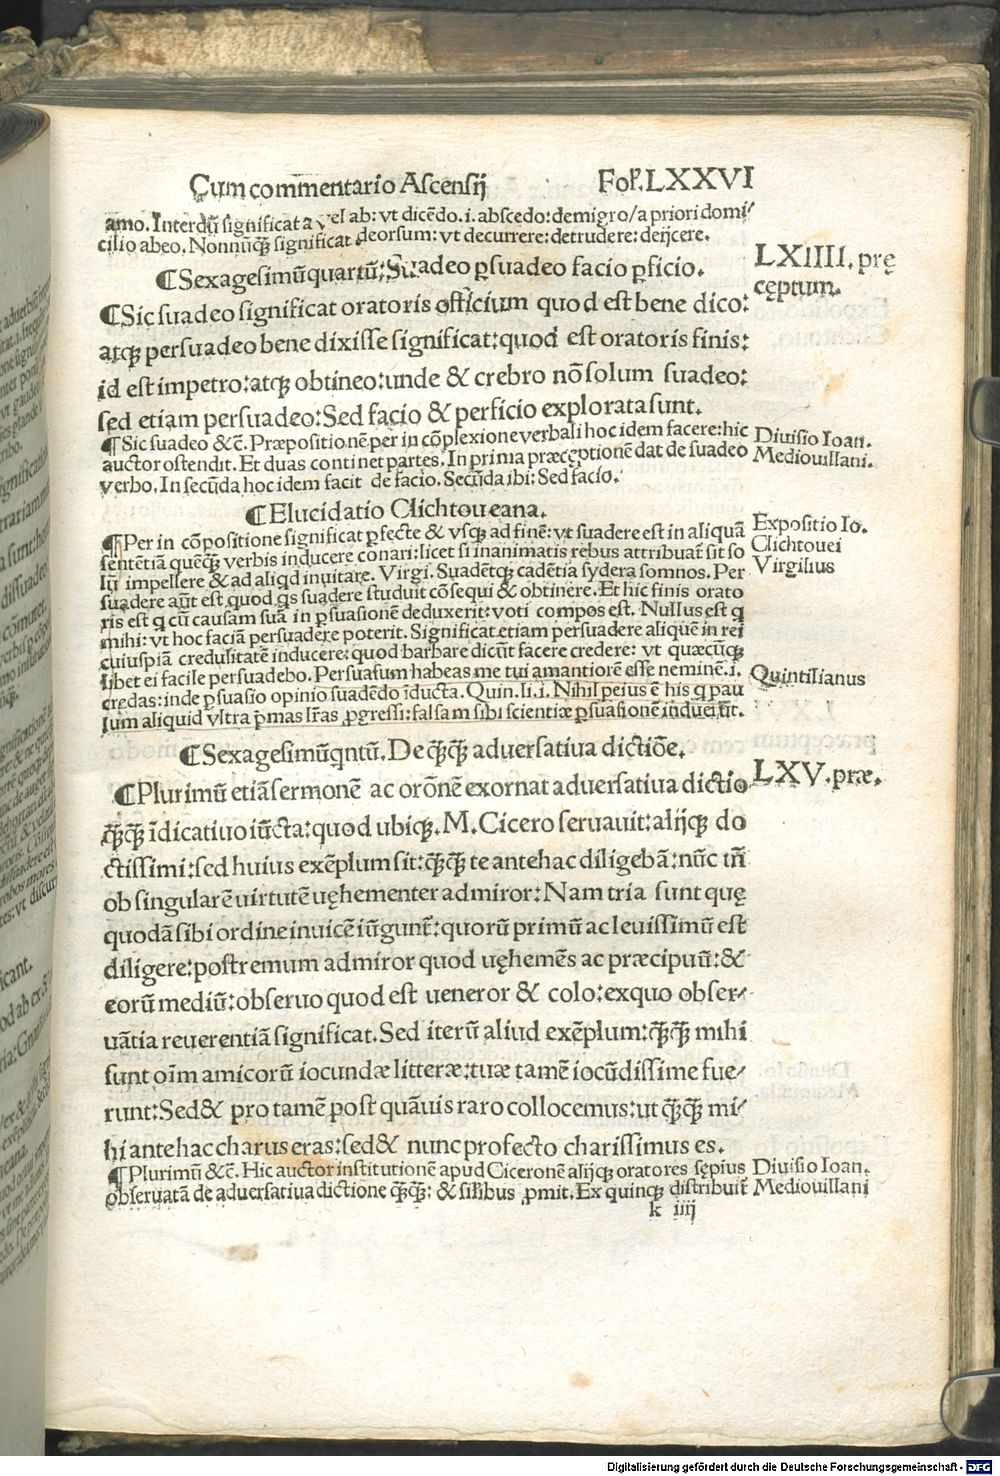 Cum commentario Ascensij Fol. LXXVI
amo. Interdũ significat a vel ab: vt dicẽdo .i. abscedo: demigro/a priori domi⸗
cilio abeo. Nonnũꝗ̃ significat deorsum: vt decurrere: detrudere: deijcere.
¶Sexagesimũquartũ: Suadeo ꝑsuadeo facio ꝑficio.
LXIIII. prę
cęptum.
¶Sic suadeo significat oratoris officium quod est bene dico:
atqꝫ persuadeo bene dixisse significat: quod est oratoris finis:
id est impetro: atqꝫ obtineo: unde & crebro nõ solum suadeo:
sed etiam persuadeo: Sed facio & perficio explorata sunt.
¶Sic suadeo &c̃. Præpositionẽ per in cõplexione verbali hoc idem facere: hic
auctor ostendit. Et duas continet partes. In prima præceptionẽ dat de suadeo
verbo. In secũda hoc idem facit de facio. Secũda ibi: Sed facio.
Diuisio Ioan.
Mediouillani.
¶Elucidatio Clichtoueana.
¶Per in cõpositione significat ꝑfecte & vsqꝫ ad finẽ: vt suadere est in aliquã
sentẽtiã quẽqꝫ verbis inducere conari: licet si inanimatis rebus attribuat̃ sit so
lũ impellere & ad aliqd inuitare. Virgi. Suadẽtqꝫ cadẽtia sydera somnos. Per
suadere aũt est quod qs suadere studuit cõsequi & obtinere. Et hic finis orato
ris est q cũ causam suã in ꝑsuasionẽ deduxerit: voti compos est. Nullus est q
mihi: vt hoc faciã persuadere poterit. Significat etiam persuadere aliquẽ in rei
cuiuspiã credulitatẽ inducere: quod barbare dicũt facere credere: vt quæcũqꝫ
libet ei facile persuadebo. Persuasum habeas me tui amantiorẽ esse neminẽ .i.
credas: inde ꝑsuasio opinio suadẽdo ĩducta. Quin. li. i. Nihil peius ẽ his q pau
lum aliquid vltra p̃mas lr̃as ꝓgressi: falsam sibi scientiæ ꝑsuasionẽ induerũt.
Expositio Io.
Clichtouei
Virgilius
Quintilianus
¶Sexagesimũqntũ. De ꝗ̃ꝗ̃ aduersatiua dictiõe.
¶Plurimũ etiã sermonẽ ac orõnẽ exornat aduersatiua dictio
ꝗ̃ꝗ̃ ĩdicatiuo iũcta: quod ubiqꝫ. M. Cicero seruauit: alijqꝫ do
ctissimi: sed huius exẽplum sit: ꝗ̃ꝗ̃ te antehac diligebã: nũc tñ
ob singularẽ uirtutẽ uęhementer admiror: Nam tria sunt quę
quodã sibi ordine inuicẽ iũgunt̃: quorũ primũ ac leuissimũ est
diligere: postremum admiror quod uęhemẽs ac præcipuũ: &
eorũ mediũ: obseruo quod est ueneror & colo: ex quo obser⸗
uãtia reuerentiã significat. Sed iterũ aliud exẽplum: ꝗ̃ꝗ̃ mihi
sunt oĩm amicorũ iocundæ litteræ: tuæ tamẽ iocũdissime fue⸗
runt: Sed & pro tamẽ post quãuis raro collocemus: ut ꝗ̃ꝗ̃ mi⸗
hi antehac charus eras: sed & nunc profecto charissimus es.
LXV. præ.
¶Plurimũ &c̃. Hic auctor institutionẽ apud Ciceronẽ alijqꝫ oratores sępius
obseruatã de aduersatiua dictione ꝗ̃ꝗ̃: & sil̃ibus ꝓmit. Ex quinqꝫ distribuit̃
Diuisio Ioan.
Mediouillani
k iiij
Digitalisierung gefördert durch die Deutsche Forschungsgemeinschaft - DFG